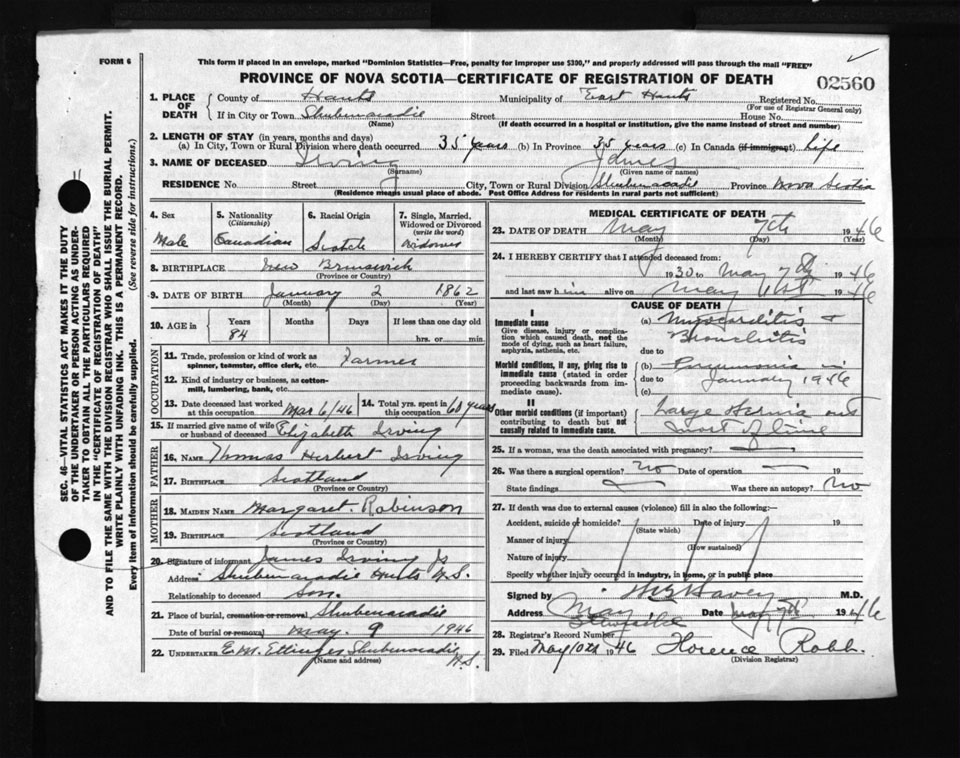 FORM 6
This form if placed in an envelope, marked "Dominion Statistics—Free, penalty for improper use $300," and properly addressed will pass through the mail "FREE"
PROVINCE OF NOVA SCOTIA—CERTIFICATE OF REGISTRATION OF DEATH
02560
1. PLACE OF DEATH
County of Hants Municipality of East Hants Registered No.
(For use of Registrar General only)
If in City or Town Shubenacadie Street House No.
(Name) (If death occurred in a hospital or institution, give the name instead of street and number)
2. LENGTH OF STAY (in years, months and days)
(a) In City, Town or Rural Division where death occurred 35 years (b) In Province 35 years (c) In Canada (if immigrant) Life
3. NAME OF DECEASED Irving James
(Surname) (Given name or names)
RESIDENCE No. Street City, Town or Rural Division Shubenacadie Province Nova Scotia
(Residence means usual place of abode. Post Office Address for residents in rural parts not sufficient)
4. Sex
Male
5. Nationality
(Citizenship)
Canadian
6. Racial Origin
Scotch
7. Single, Married, Widowed or Divorced
(write the word)
Widower
8. BIRTHPLACE New Brunswick
(Province or Country)
9. DATE OF BIRTH January 2 1862
(Month) (Day) (Year)
10. AGE in Years Months Days If less than one day old
84 hrs. or min.
OCCUPATION
11. Trade, profession or kind of work as Farmer
spinner, teamster, office clerk, etc.
12. Kind of industry or business, as cotton-
mill, lumbering, bank, etc.
13. Date deceased last worked at this occupation Mar 6/46
14. Total yrs. spent in this occupation 60 years
15. If married give name of wife or husband of deceased Elizabeth Irving
FATHER
16. NAME Thomas Herbert Irving
17. BIRTHPLACE Scotland
(Province or Country)
MOTHER
18. MAIDEN NAME Margaret Robinson
19. BIRTHPLACE Scotland
(Province or Country)
20. Signature of informant James Irving Jr
Address Shubenacadie Hants N.S.
Relationship to deceased Son.
21. Place of burial, cremation or removal Shubenacadie
Date of burial or removal May. 9 1946
22. UNDERTAKER E.M. Shubenacadie N.S.
(Name and address)
MEDICAL CERTIFICATE OF DEATH
23. DATE OF DEATH May 7th 1946
(Month) (Day) (Year)
24. I HEREBY CERTIFY that I attended deceased from:
1930 to May 7th 1946
and last saw him alive on May 1946
CAUSE OF DEATH
I
Immediate cause
Give disease, injury or complication which caused death, not the mode of dying, such as heart failure, asphyxia, asthenia, etc.
(a) Myocarditis & Bronchitis
due to
Morbid conditions, if any, giving rise to immediate cause (stated in order proceeding backwards from immediate cause).
(b) Pneumonia in
due to January 1946
(c)
II
Other morbid conditions (if important) contributing to death but not causally related to immediate cause.
Large Hernia
most of time
25. If a woman, was the death associated with pregnancy?
26. Was there a surgical operation? No Date of operation 19
State findings Was there an autopsy? No
27. If death was due to external causes (violence) fill in also the following:—
Accident, suicide or homicide? Date of injury 19
(State which)
Manner of injury
(How sustained)
Nature of injury
Specify whether injury occurred in industry, in home, or in public place
Signed by M.D.
Address Stewiacke Date May 7th 1946
28. Registrar's Record Number
29. Filed May 10th 1946 Florence Robb.
(Division Registrar)
SEC. 46—VITAL STATISTICS ACT MAKES IT THE DUTY
OF THE UNDERTAKER OR PERSON ACTING AS UNDER-
TAKER TO OBTAIN ALL THE PARTICULARS REQUIRED
IN THE "CERTIFICATE OF REGISTRATION OF DEATH"
AND TO FILE THE SAME WITH THE DIVISION REGISTRAR WHO SHALL ISSUE THE BURIAL PERMIT.
WRITE PLAINLY WITH UNFADING INK. THIS IS A PERMANENT RECORD.
Every item of information should be carefully supplied. (See reverse side for instructions.)